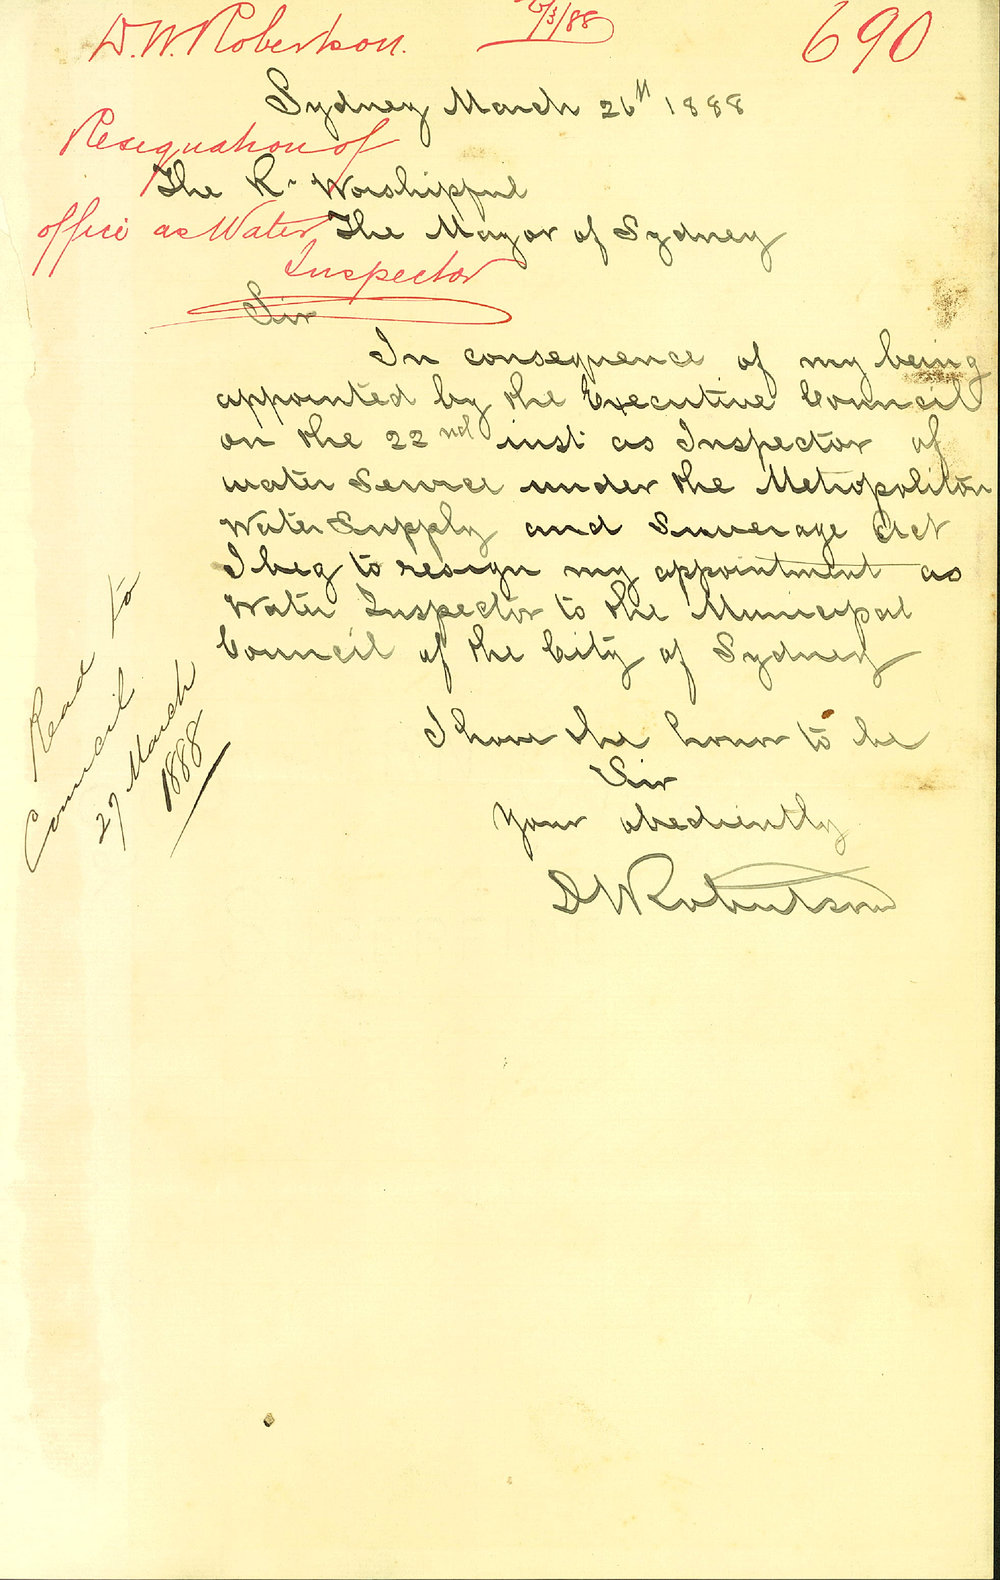 D. W. Robertson.
/3/88
690
Sydney March 26th 1888
Resignation of
office as Water
Inspector
The R. Worshipful
The Mayor of Sydney
Sir
In consequence of my being
appointed by the Executive Council
on the 22nd inst as Inspector of
water Service under the Metropolitan
Water Supply and Sewerage Act
I beg to resign my appointment as
Water Inspector to the Municipal
Council of the City of Sydney
I have the honor to be
Sir
Your obediently
D W Robertson
Read to
Council
27 March
1888